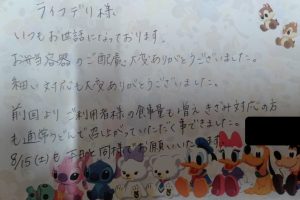 ライフデリ様
いつもお世話になっております。
お弁当容器のご配慮、大変ありがとうございました。
細い対応も大変ありがとうございました。
前回よりご利用者様の食事量も増え、きざみ対応の方
も通常どおりで召し上がっていただく事ができました。
8/15(土)も 同様でお願いいたします